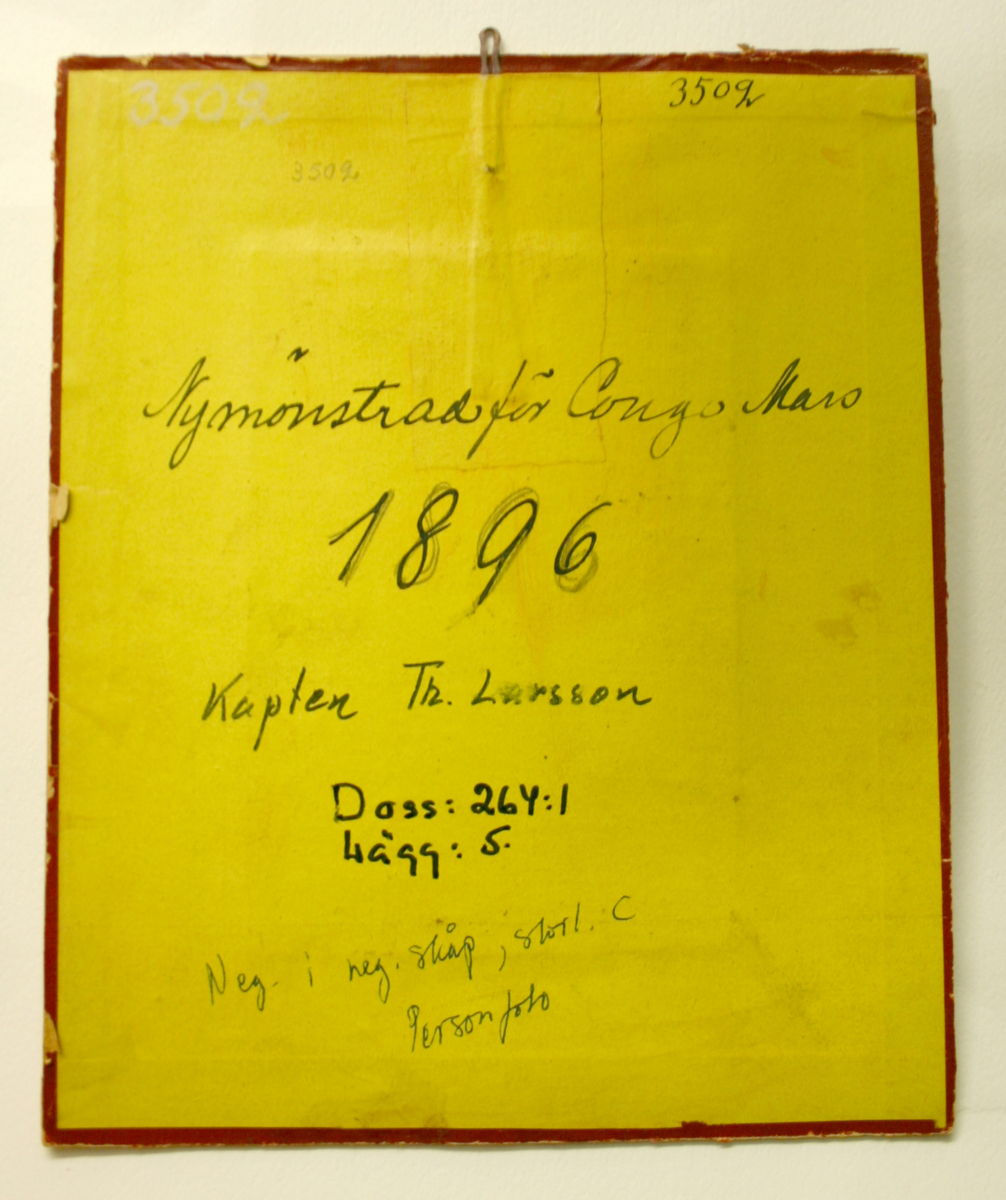 3502 3502
3502
Nymönstrad för Congo Mars
1896
Kapten Th. Larsson
Doss: 264:1
Lägg: 5.
Neg. i neg. skåp, storl. C
Personfoto